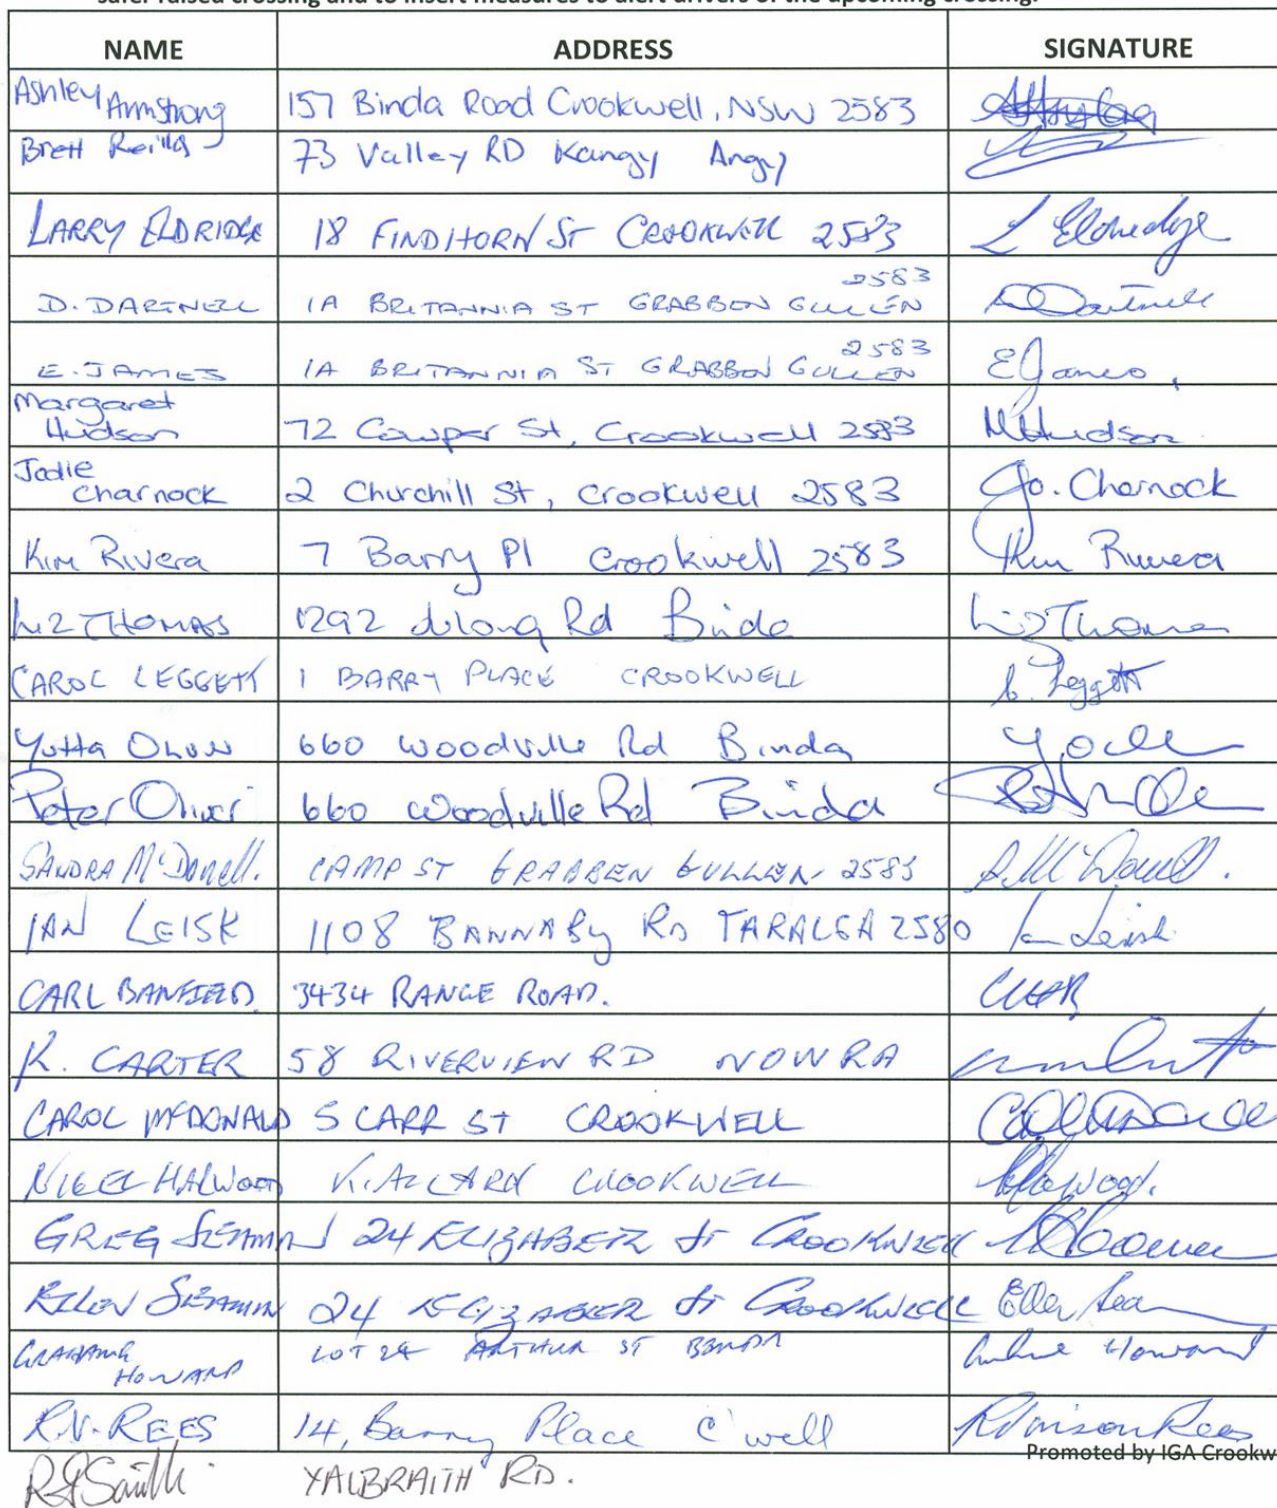 safer raised crossing and to insert measures to alert drivers of the upcoming crossing.
NAME ADDRESS SIGNATURE
Ashley Armstrong 157 Binda Road Crookwell, NSW 2583
Brett Reilly 73 Valley RD Kangy Angy
LARRY ELDRIDGE 18 FINDHORN ST CROOKWELL 2583 L Eldredge
2583
D. DARTNELL 1A BRITANNIA ST GRABBEN GULLEN D Dartnell
2583
E. JAMES 1A BRITANNIA ST GRABBEN GULLEN E James
Margaret
Hudson 72 Cowper St, Crookwell 2583 M Hudson
Jodie
Charnock 2 Churchill St, Crookwell 2583 Jo. Charnock
Kim Rivera 7 Barry Pl Crookwell 2583 Kim Rivera
LIZ THOMAS 1292 Rd Binda Liz Thomas
CAROL LEGGETT 1 BARRY PLACE CROOKWELL C. Leggett
Yutta Oliver 660 Woodville Rd Binda
Peter Oliver 660 Woodville Rd Binda
SANDRA McDonell. CAMP ST GRABBEN GULLEN 2583
IAN LEISK 1108 BANNABY RD TARALGA 2580 Ian Leisk
CARL BANFIELD. 3434 RANGE ROAD.
K. CARTER 58 RIVERVIEW RD NOWRA
CAROL McDONALD 5 CARR ST CROOKWELL
NIGEL HALWOOD CROOKWELL
GREG SEAMAN 24 ELIZABETH St CROOKWELL
ELLEN SEAMAN 24 ELIZABETH St CROOKWELL Ellen Sea
GRAHAME
HOWARD LOT 24 ARTHUR ST BINDA Howard
R.V. REES 14, Barry Place C'well Rees
Promoted by IGA Crookw
Smith YALBRAITH RD.